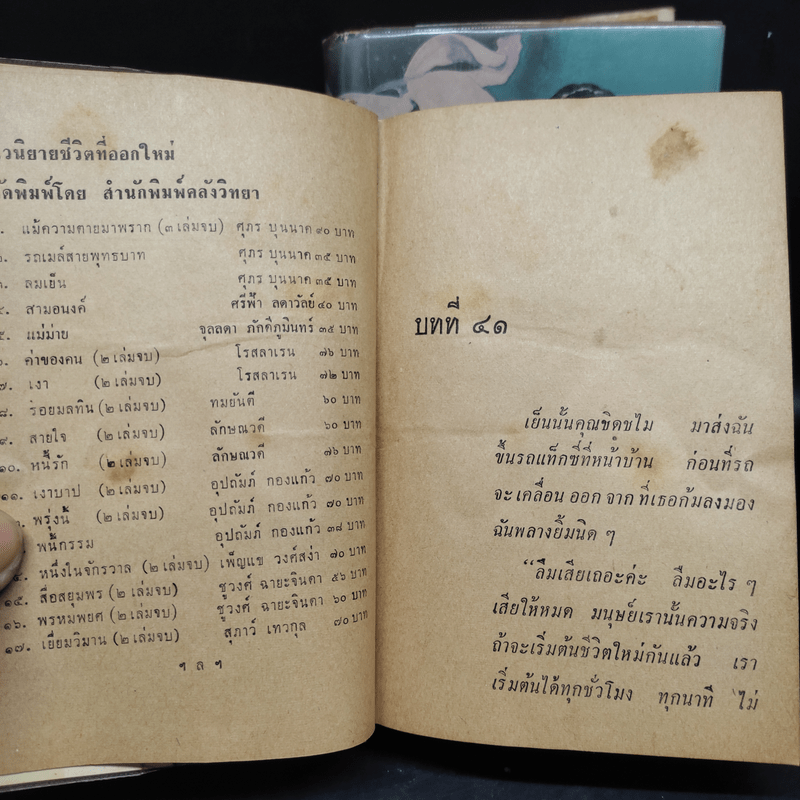 วนิยายชีวิตที่ออกใหม่
ดพิมพ์โดย สำนักพิมพ์คลังวิทยา
แม้ความตายมาพราก (๓ เล่มจบ) ศุภร บุนนาค ๙๐ บาท
๒. รถเมล์สายพุทธบาท ศุภร บุนนาค ๓๕ บาท
๓. ลมเย็น ศุภร บุนนาค ๓๕ บาท
๔. สามอนงค์ ศรีฟ้า ลดาวัลย์ ๔๐ บาท
๕. แม่ม่าย จุลลดา ภักดีภูมินทร์ ๓๕ บาท
๖. ค่าของคน (๒ เล่มจบ) โรสลาเรน ๗๖ บาท
๗. เงา (๒ เล่มจบ) โรสลาเรน ๗๒ บาท
๘. รอยมลทิน (๒ เล่มจบ) ทมยันตี ๖๐ บาท
๙. สายใจ (๒ เล่มจบ) ลักษณวดี ๖๐ บาท
๑๐. หนี้รัก (๒ เล่มจบ) ลักษณวดี ๗๖ บาท
๑๑. เงาบาป (๒ เล่มจบ) อุปถัมภ์ กองแก้ว ๗๐ บาท
พรุ่งนี้ (๒ เล่มจบ) อุปถัมภ์ กองแก้ว ๗๐ บาท
พนี้กรรม อุปถัมภ์ กองแก้ว ๓๘ บาท
หนึ่งในจักรวาล (๒ เล่มจบ) เพ็ญแข วงศ์สง่า ๗๐ บาท
๑๕. สื่อสยุมพร (๒ เล่มจบ) ชูวงศ์ ฉายะจินดา ๕๖ บาท
๑๖. พรหมพยศ (๒ เล่มจบ) ชูวงศ์ ฉายะจินดา ๖๐ บาท
๑๗. เยี่ยมวิมาน (๒ เล่มจบ) สุภาว์ เทวกุล ๗๐ บาท
ฯ ล ฯ
บทที่ ๔๑
เย็นนั้นคุณขิดขไม มาส่งฉัน
ขึ้นรถแท็กซี่ที่หน้าบ้าน ก่อนที่รถ
จะ เคลื่อน ออก จาก ที่เธอก้มลงมอง
ฉันพลางยิ้มนิด ๆ
“ลืมเสียเถอะค่ะ ลืมอะไร ๆ
เสียให้หมด มนุษย์เรานั้นความจริง
ถ้าจะเริ่มต้นชีวิตใหม่กันแล้ว เรา
เริ่มต้นได้ทุกชั่วโมง ทุกนาที ไม่